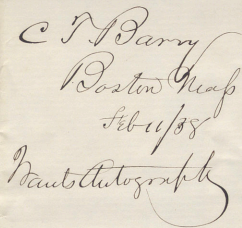 C T. Barry
Boston Mass
Feb 11/38
Wants Autograph